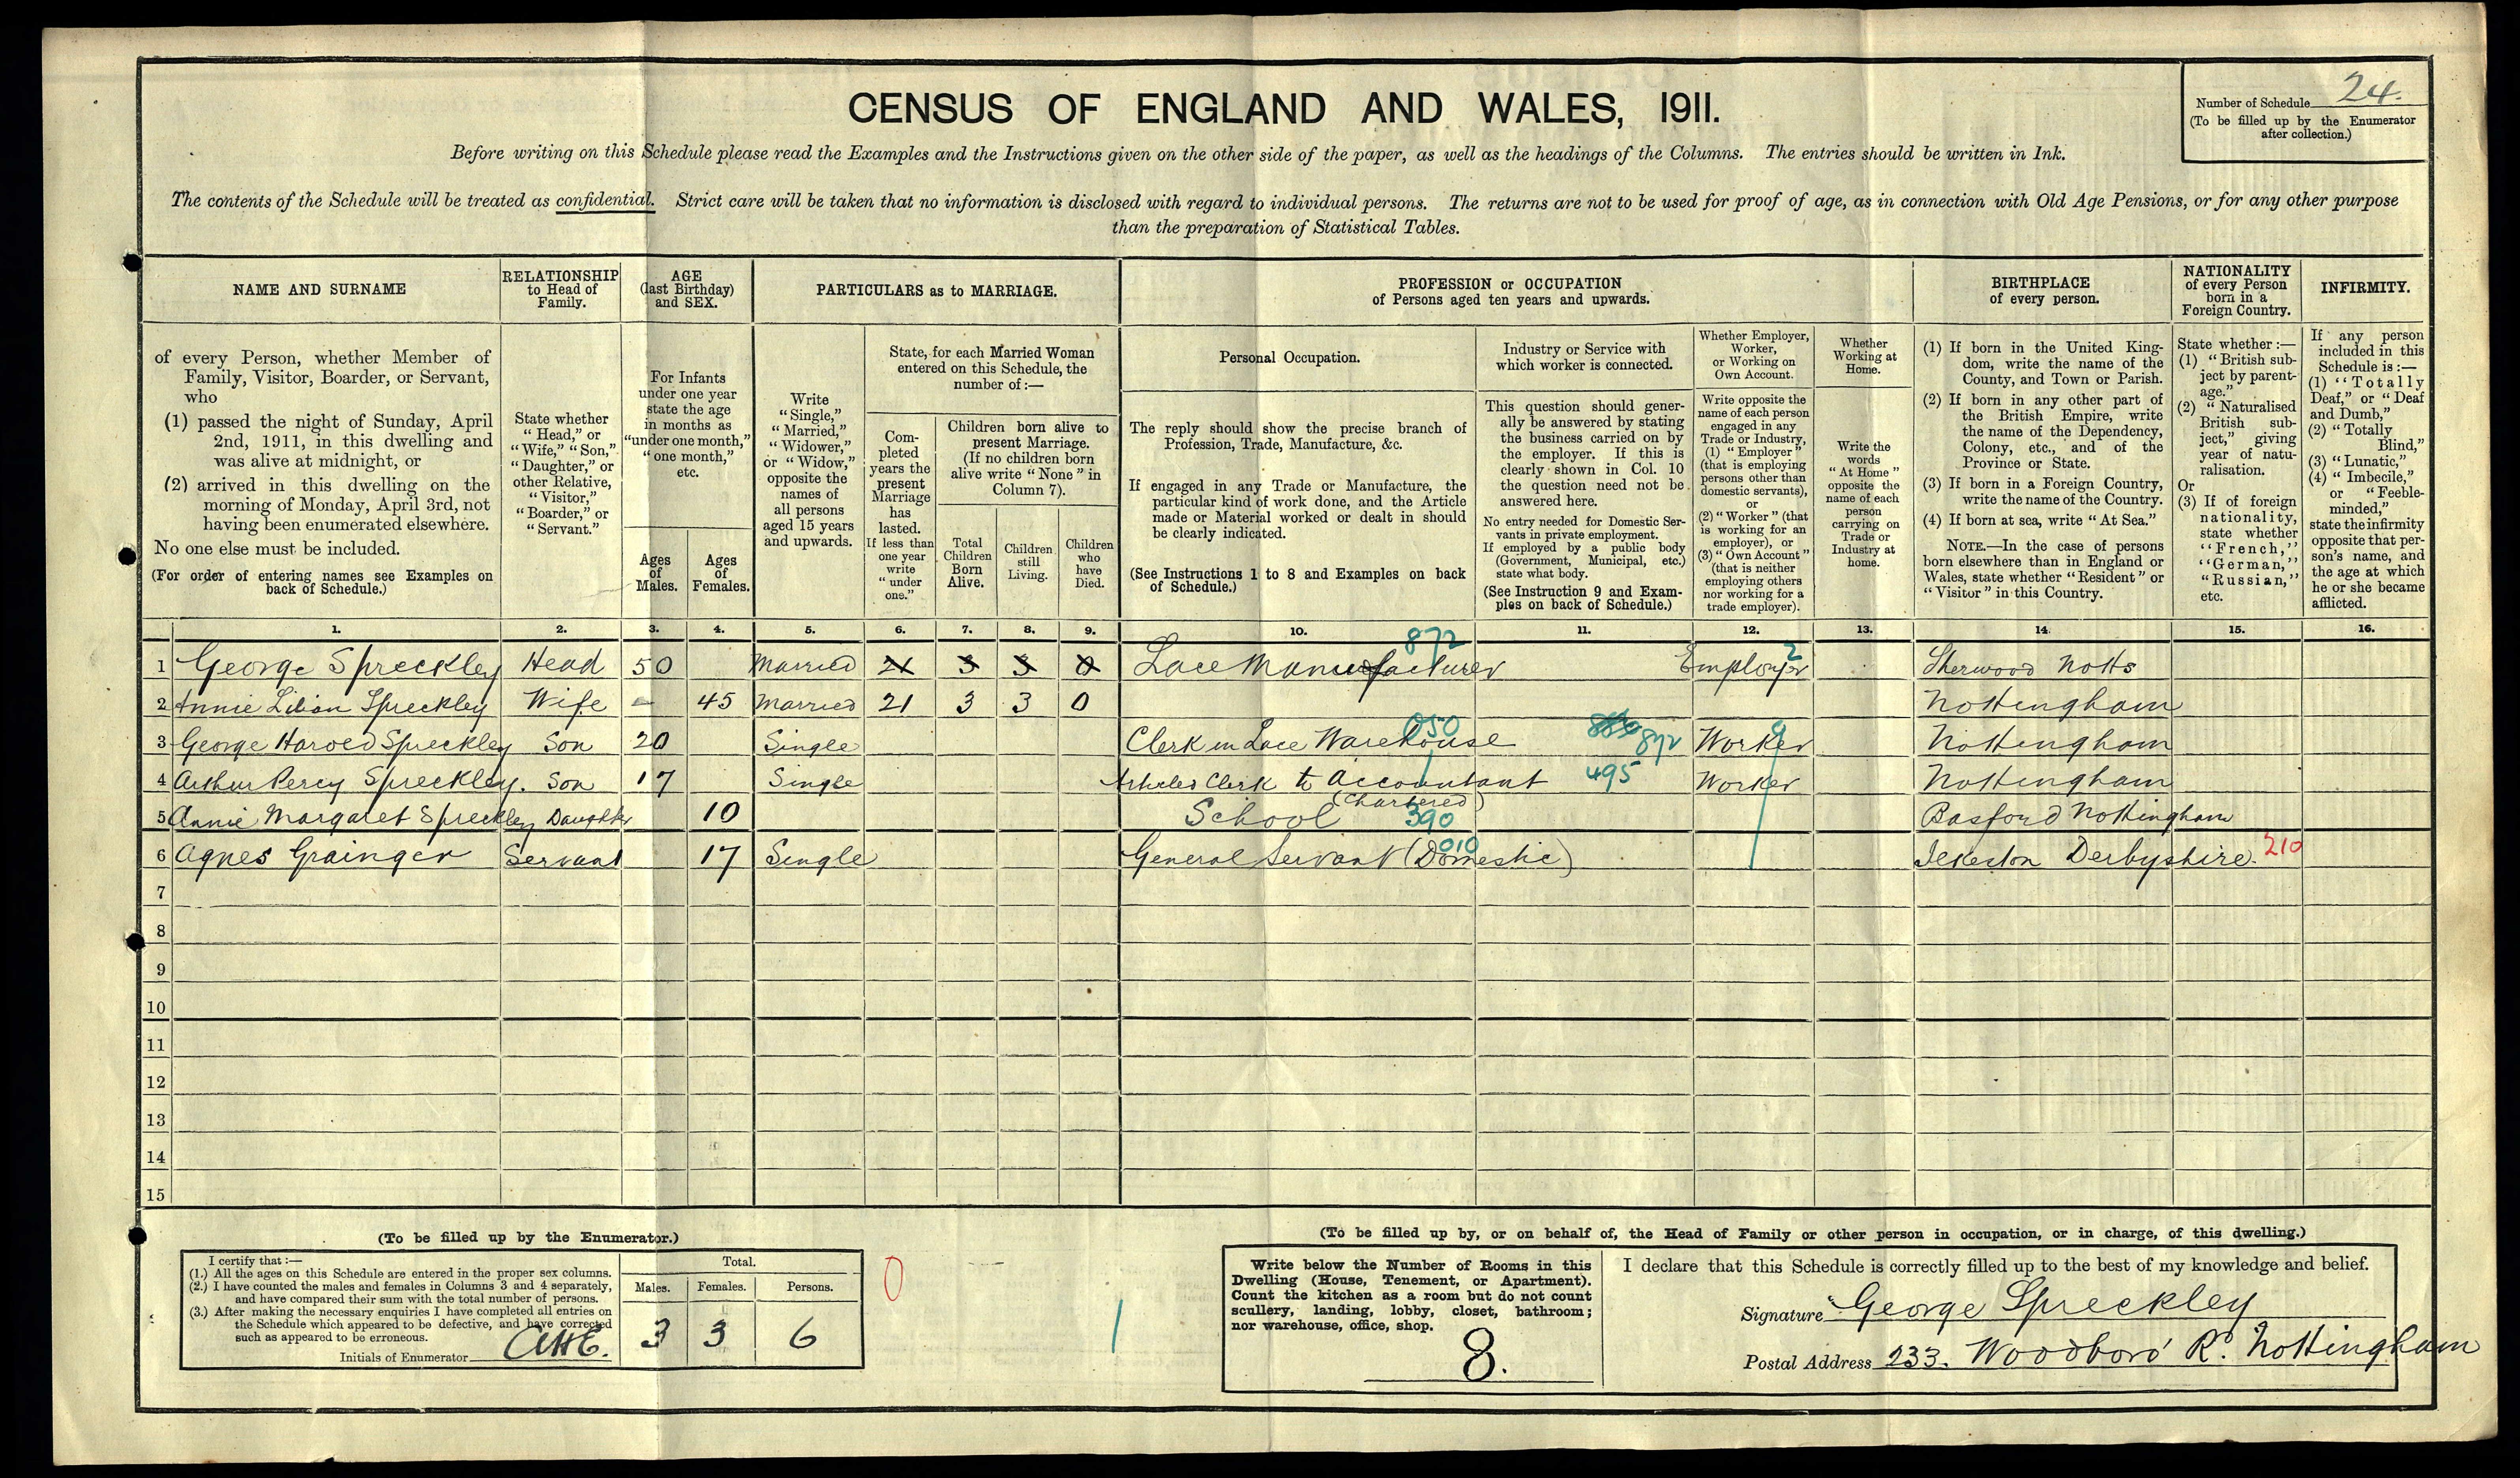 CENSUS OF ENGLAND AND WALES, 1911.
Number of Schedule 24.
(To be filled up by the Enumerator
after collection.)
Before writing on this Schedule please read the Examples and the Instructions given on the other side of the paper, as well as the headings of the Columns. The entries should be written in Ink.
The contents of the Schedule will be treated as confidential. Strict care will be taken that no information is disclosed with regard to individual persons. The returns are not to be used for proof of age, as in connection with Old Age Pensions, or for any other purpose
than the preparation of Statistical Tables.
NAME AND SURNAME
of every Person, whether Member of
Family, Visitor, Boarder, or Servant,
who
(1) passed the night of Sunday, April
2nd, 1911, in this dwelling and
was alive at midnight, or
(2) arrived in this dwelling on the
morning of Monday, April 3rd, not
having been enumerated elsewhere.
No one else must be included.
(For order of entering names see Examples on
back of Schedule.)
RELATIONSHIP
to Head of
Family.
State whether
"Head," or
"Wife," "Son,"
"Daughter," or
other Relative,
"Visitor,"
"Boarder," or
"Servant."
AGE
(last Birthday)
and SEX.
For Infants
under one year
state the age
in months as
"under one month,"
"one month,"
etc.
Ages
of
Males.
Ages
of
Females.
PARTICULARS as to MARRIAGE.
Write
"Single,"
"Married,"
"Widower,"
or "Widow,"
opposite the
names of
all persons
aged 15 years
and upwards.
State, for each Married Woman
entered on this Schedule, the
number of:—
Com-
pleted
years the
present
Marriage
has
lasted.
If less than
one year
write
"under
one."
Children born alive to
present Marriage.
(If no children born
alive write "None" in
Column 7).
Total
Children
Born
Alive.
Children
still
Living.
Children
who
have
Died.
PROFESSION or OCCUPATION
of Persons aged ten years and upwards.
Personal Occupation.
The reply should show the precise branch of
Profession, Trade, Manufacture, &c.
If engaged in any Trade or Manufacture, the
particular kind of work done, and the Article
made or Material worked or dealt in should
be clearly indicated.
(See Instructions 1 to 8 and Examples on back
of Schedule.)
Industry or Service with
which worker is connected.
This question should gener-
ally be answered by stating
the business carried on by
the employer. If this is
clearly shown in Col. 10
the question need not be
answered here.
No entry needed for Domestic Ser-
vants in private employment.
If employed by a public body
(Government, Municipal, etc.)
state what body.
(See Instruction 9 and Exam-
ples on back of Schedule.)
Whether Employer,
Worker,
or Working on
Own Account.
Write opposite the
name of each person
engaged in any
Trade or Industry,
(1) "Employer"
(that is employing
persons other than
domestic servants),
or
(2) "Worker" (that
is working for an
employer), or
(3) "Own Account"
(that is neither
employing others
nor working for a
trade employer).
Whether
Working at
Home.
Write the
words
"At Home"
opposite the
name of each
person
carrying on
Trade or
Industry at
home.
BIRTHPLACE
of every person.
(1) If born in the United King-
dom, write the name of the
County, and Town or Parish.
(2) If born in any other part of
the British Empire, write
the name of the Dependency,
Colony, etc., and of the
Province or State.
(3) If born in a Foreign Country,
write the name of the Country.
(4) If born at sea, write "At Sea."
NOTE.—In the case of persons
born elsewhere than in England or
Wales, state whether "Resident" or
"Visitor" in this Country.
NATIONALITY
of every Person
born in a
Foreign Country.
State whether:—
(1) "British sub-
ject by parent-
age."
(2) "Naturalised
British sub-
ject," giving
year of natu-
ralisation.
Or
(3) If of foreign
nationality,
state whether
"French,"
"German,"
"Russian,"
etc.
INFIRMITY.
If any person
included in this
Schedule is:—
(1) "Totally
Deaf," or "Deaf
and Dumb,"
(2) "Totally
Blind,"
(3) "Lunatic,"
(4) "Imbecile,"
or "Feeble-
minded,"
state the infirmity
opposite that per-
son's name, and
the age at which
he or she became
afflicted.
1. 2. 3. 4. 5. 6. 7. 8. 9. 10. 11. 12. 13. 14. 15. 16.
872 2
1 George Spreckley Head 50 Married 21 3 3 0 Lace Manufacturer Employer Sherwood Notts
2 Annie Lilian Spreckley Wife 45 Married 21 3 3 0 Nottingham
050 892 9
3 George Harold Spreckley Son 20 Single Clerk in Lace Warehouse Worker Nottingham
4 Arthur Percy Spreckley. Son 17 Single Articled Clerk to accountant 495 Worker Nottingham
(Chartered)
5 Annie Margaret Spreckley Daughter 10 School 390 Basford Nottingham
6 Agnes Grainger Servant 17 Single General Servant (Domestic) 010 Ilkeston Derbyshire. 210
7
8
9
10
11
12
13
14
15
(To be filled up by the Enumerator.)
I certify that:—
(1.) All the ages on this Schedule are entered in the proper sex columns.
(2.) I have counted the males and females in Columns 3 and 4 separately,
and have compared their sum with the total number of persons.
(3.) After making the necessary enquiries I have completed all entries on
the Schedule which appeared to be defective, and have corrected
such as appeared to be erroneous.
Initials of Enumerator
Total.
Males. Females. Persons.
3 3 6
0
1
(To be filled up by, or on behalf of, the Head of Family or other person in occupation, or in charge, of this dwelling.)
Write below the Number of Rooms in this
Dwelling (House, Tenement, or Apartment).
Count the kitchen as a room but do not count
scullery, landing, lobby, closet, bathroom;
nor warehouse, office, shop.
8.
I declare that this Schedule is correctly filled up to the best of my knowledge and belief.
Signature George Spreckley
Postal Address 233. Woodboro' Rd. Nottingham